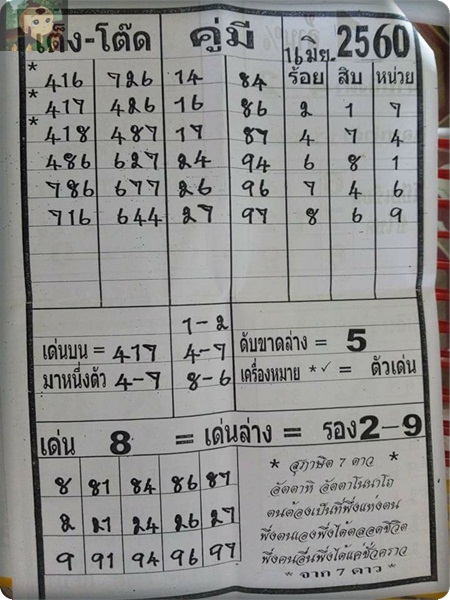 เต็ง-โต๊ด คู่มี 16 มิย. 2560
ร้อย สิบ หน่วย
* 416 726 14 84
* 417 426 16 86 2 1 7
* 418 487 17 87 4 7 4
486 627 24 94 6 8 1
786 677 26 96 7 4 6
716 644 27 97 8 6 9
1-2
เด่นบน = 417 4-7 ดับขาดล่าง = 5
มาหนึ่งตัว 4-7 8-6 เครื่องหมาย *✓ = ตัวเด่น
เด่น 8 = เด่นล่าง = รอง 2-9
8 81 84 86 87
2 21 24 26 27
9 91 94 96 97
* สุภาษิต 7 ดาว *
อัตตาหิ อัตตาโนนาโถ
ตนต้องเป็นที่พึ่งแห่งตน
พึ่งตนเองพึ่งได้ตลอดชีวิต
พึ่งคนอื่นพึ่งได้แค่ชั่วคราว
* จาก 7 ดาว *